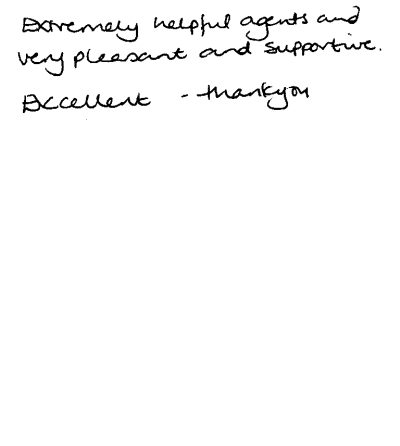 Extremely helpful agents and
very pleasant and supportive.
Excellent - thankyou